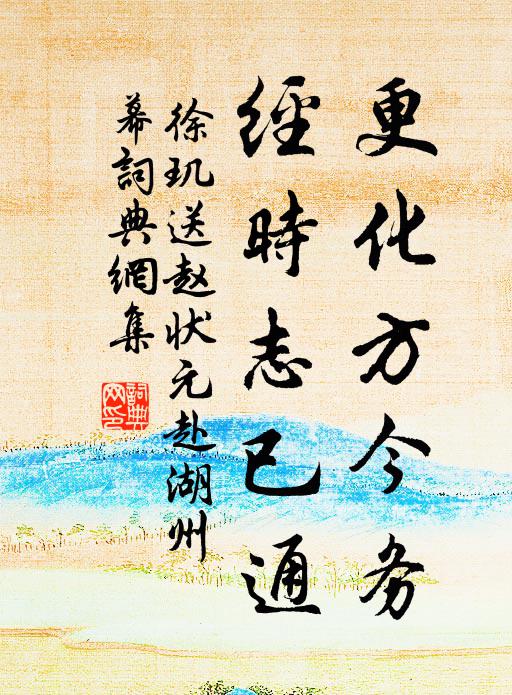 更化方今务
經時志已通
徐玑送赵状元赴湖州
幕詞典網集
詞典
网印